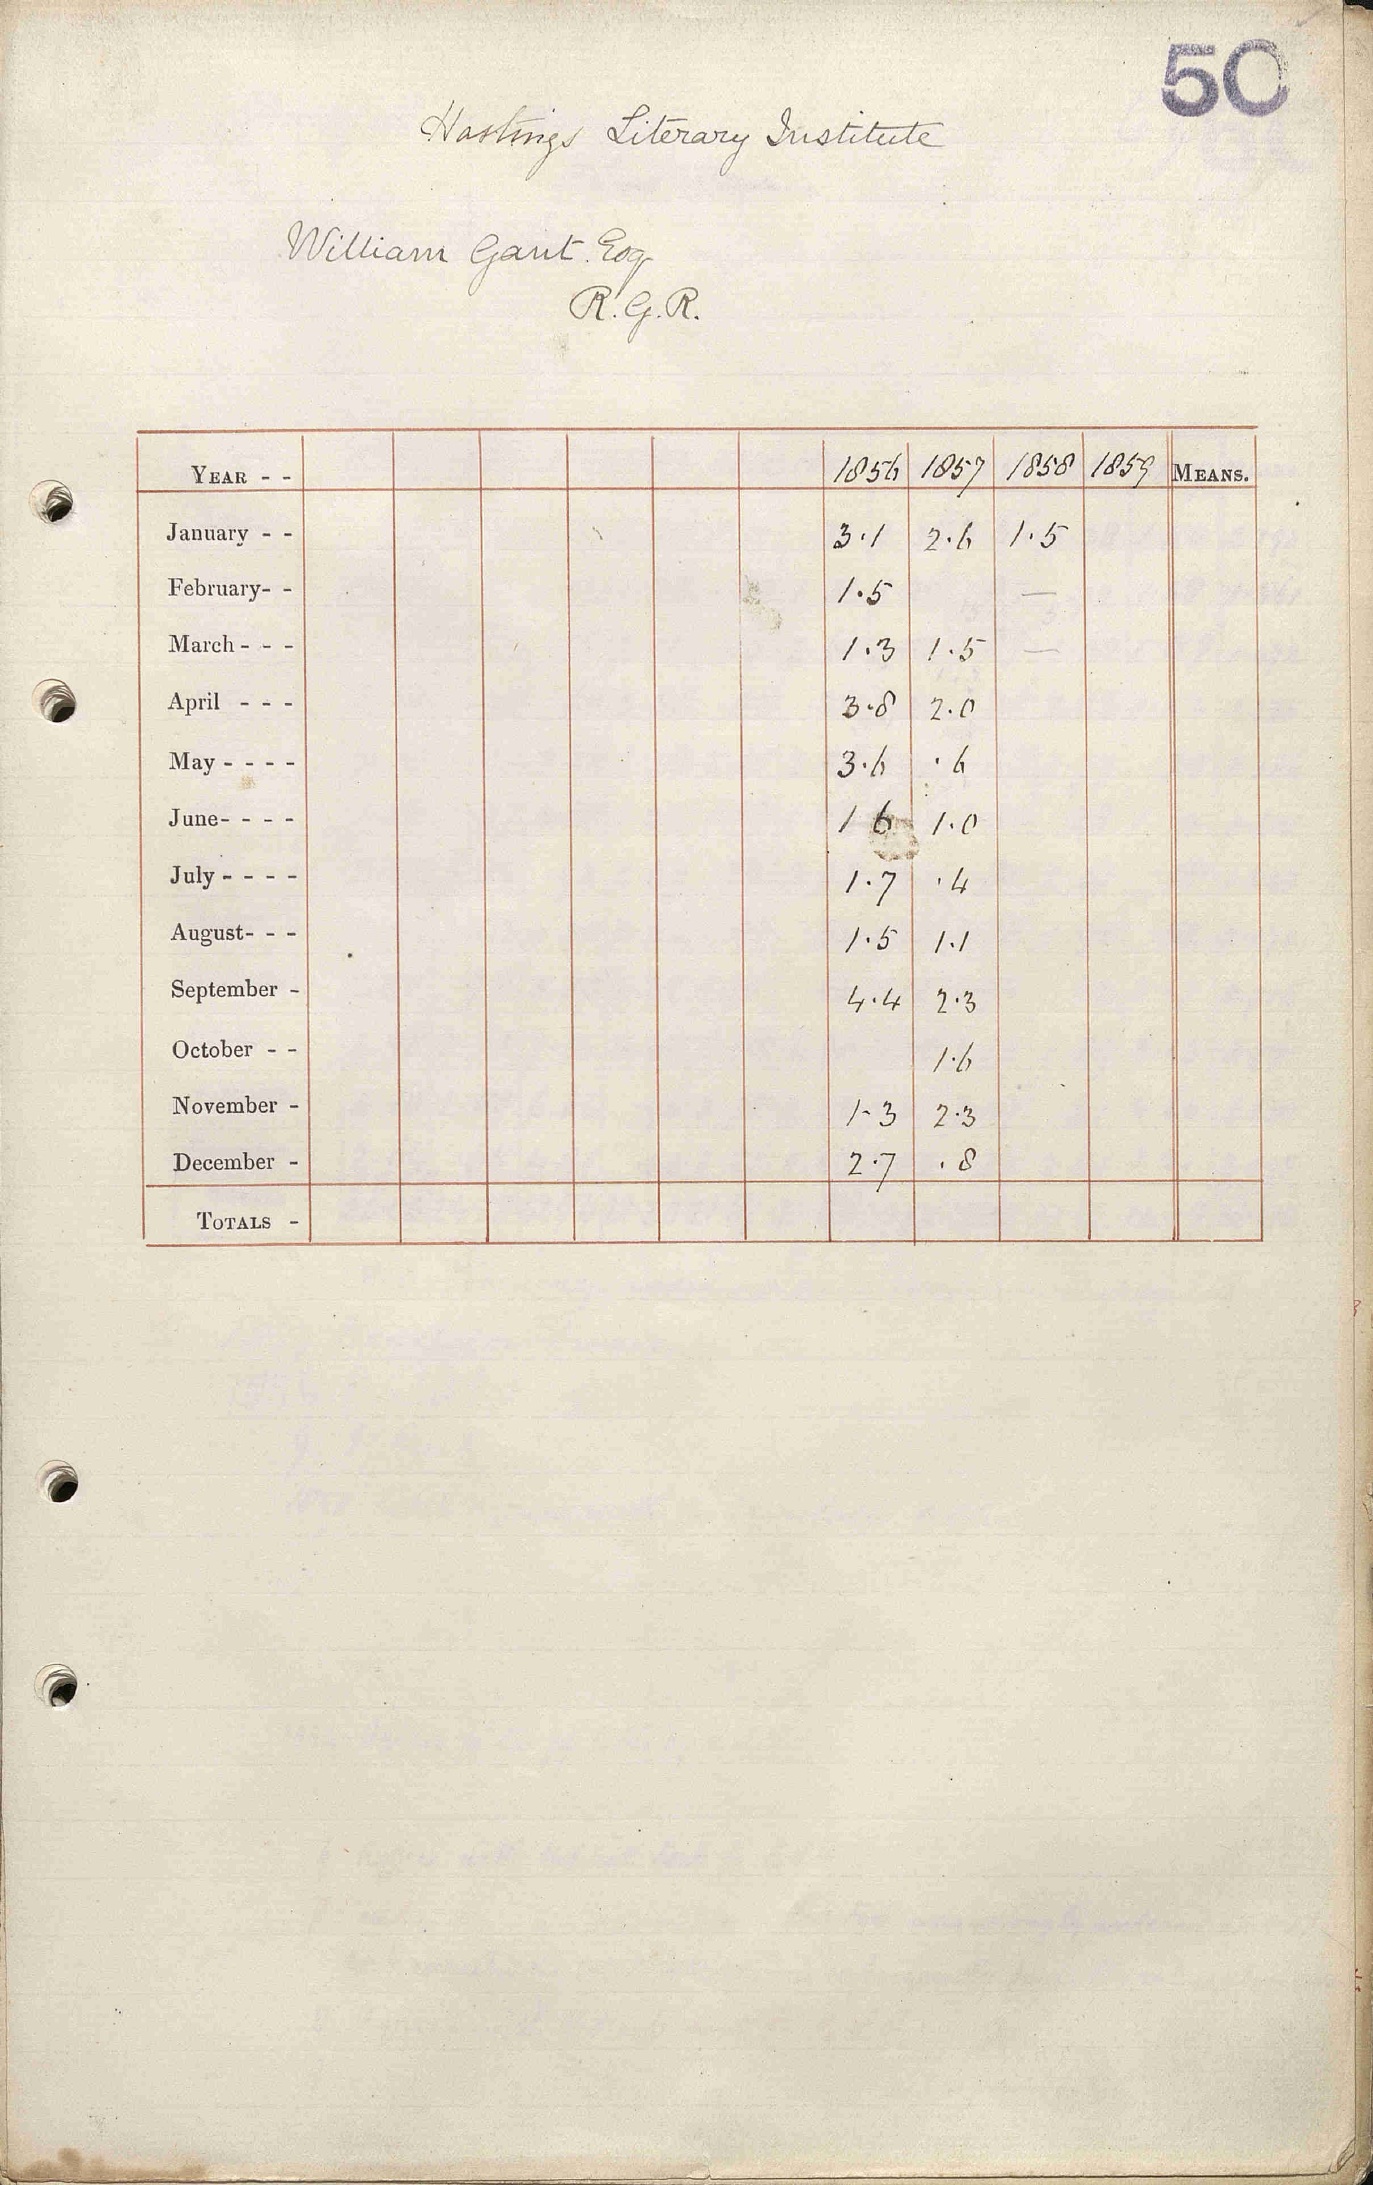 50
Hastings Literary Institute
William Gant. Esq
R.G.R.
YEAR - - 1856 1857 1858 1859 MEANS.
January - - 3.1 2.6 1.5
February- - 1.5 —
March - - - 1.3 1.5 —
April - - - 3.8 2.0
May - - - - 3.6 .6
June- - - - 1 6 1.0
July - - - - 1.7 .4
August- - - 1.5 1.1
September - 4.4 2.3
October - - 1.6
November - 1-3 2.3
December - 2.7 .8
TOTALS -